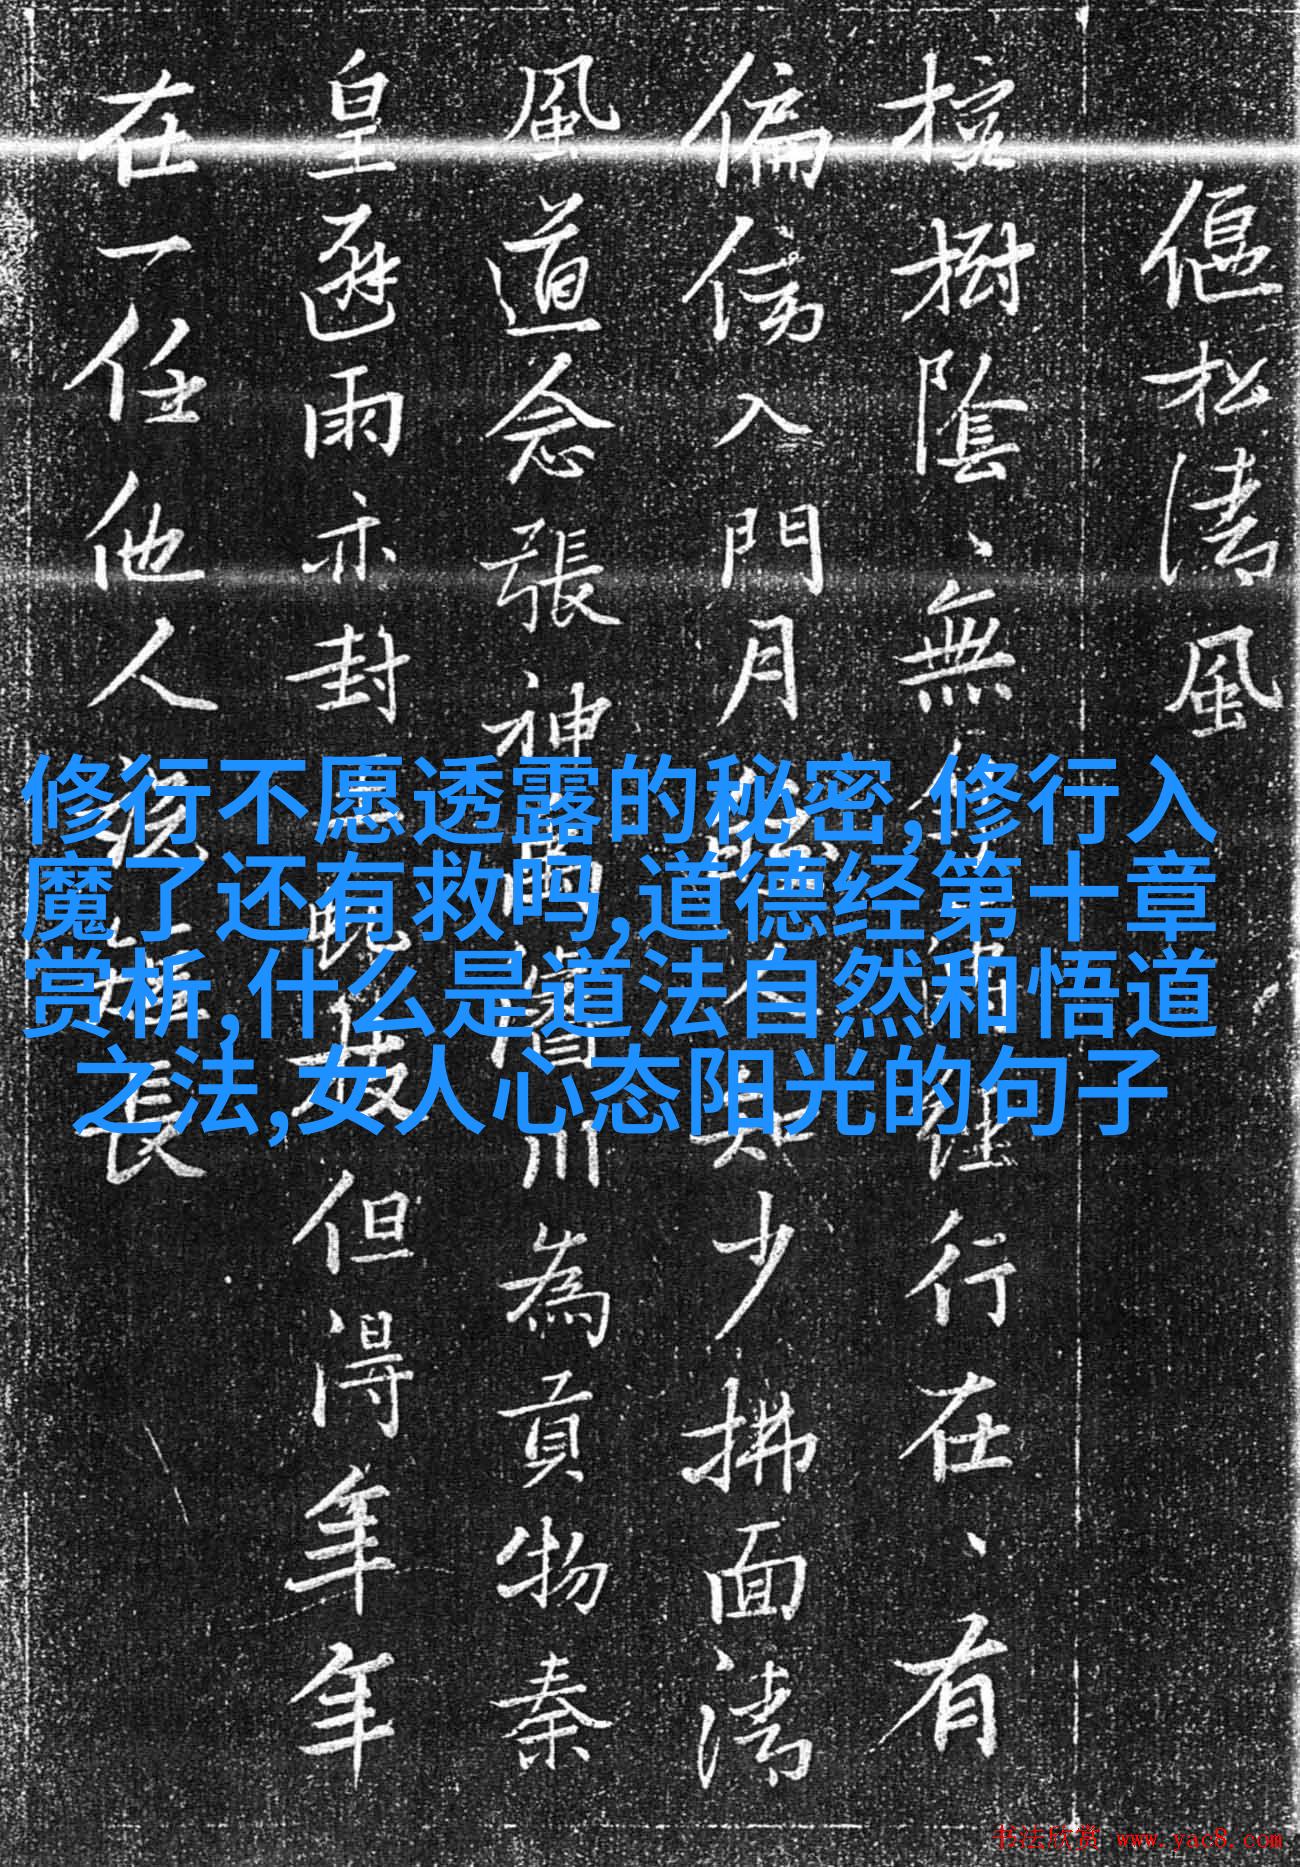 偃松清風
樹陰、無 行在、有
偏傍入門月 少拂面清
風道念張神 為貢物秦
皇避雨亦封 但得年年
在一任他人 長
修行不愿透露的秘密,修行入
魔了还有救吗,道德经第十章
赏析,什么是道法自然和悟道
之法,女人心态阳光的句子
书法欣赏 www.yac8.com